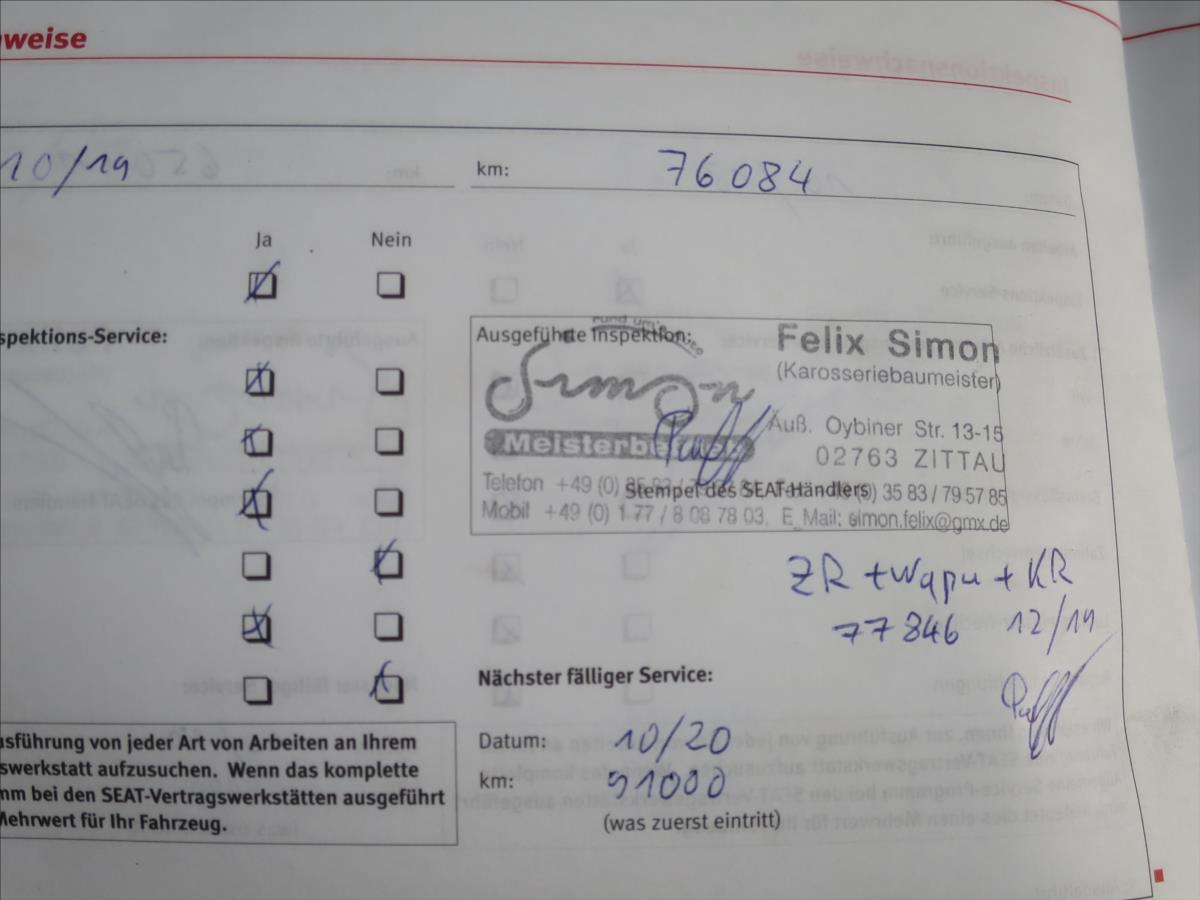 weise
10/19
km: 76084
Ja Nein
spektions-Service:
Ausgeführte Inspektion:
rund um's
Simon
Felix Simon
(Karosseriebaumeister)
Meisterbetrieb
Äuß. Oybiner Str. 13-15
02763 ZITTAU
Telefon +49 (0) 35 83 /
Stempel des SEAT-Händlers
(0) 35 83 / 79 57 85
Mobil +49 (0) 1 77 / 8 08 78 03, E_Mail: simon.felix@gmx.de
ZR + Wapu + KR
77846 12/19
Nächster fälliger Service:
Datum: 10/20
km: 91000
(was zuerst eintritt)
usführung von jeder Art von Arbeiten an Ihrem
swerkstatt aufzusuchen. Wenn das komplette
mm bei den SEAT-Vertragswerkstätten ausgeführt
Mehrwert für Ihr Fahrzeug.